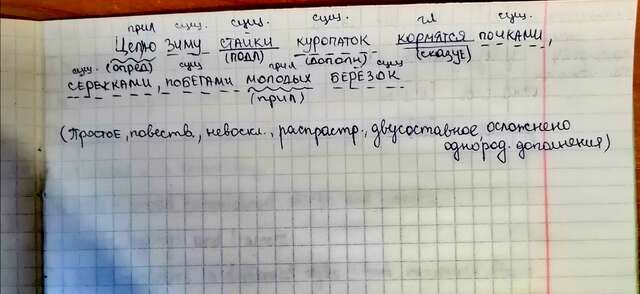 прил сущ. сущ. сущ. гл сущ.
Целую зиму стайки куропаток кормятся почками,
сущ. (опред) сущ (подл) прил (дополн) сущ (сказуе)
серёжками, побегами молодых берёзок
(прил)
(Простое, повеств., невоскл., распростр., двусоставное, осложнено
однород. дополнения)